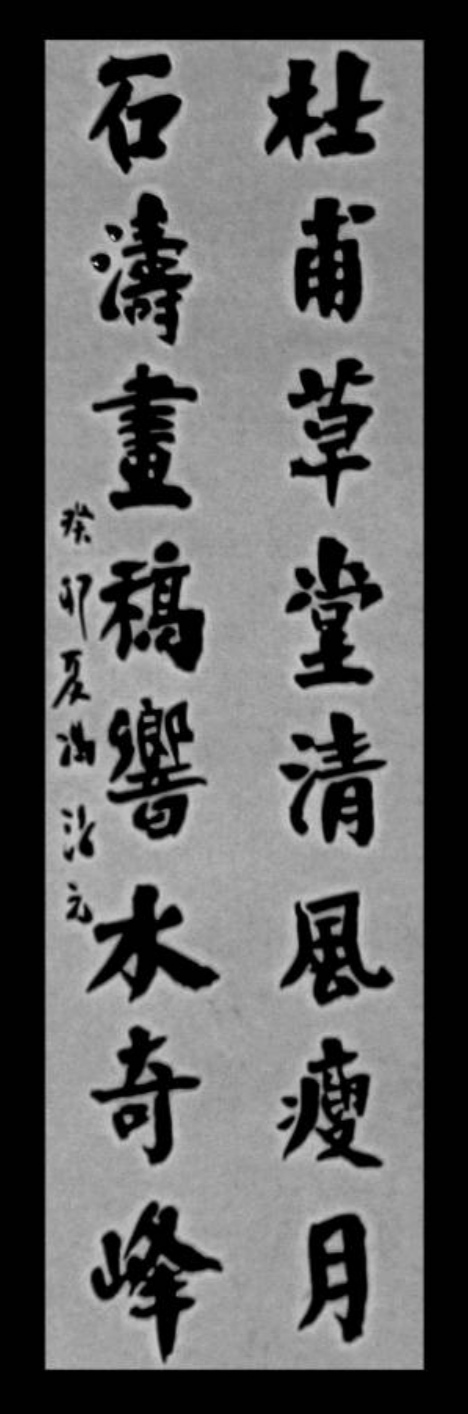 杜甫草堂清風瘦月
石濤畫稿響水奇峰
癸卯夏馮治元